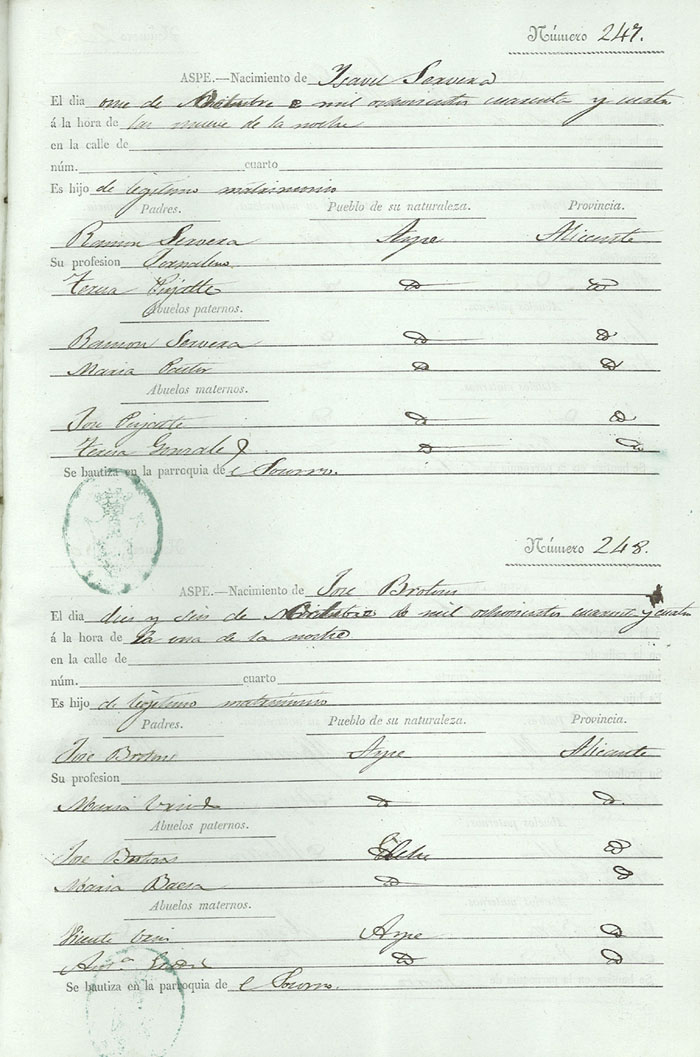 Número 247.
ASPE.—Nacimiento de Isabel Servera
El dia once de Octubre de mil ochocientos cuarenta y cuatro
á la hora de las nueve de la noche
en la calle de
núm. cuarto
Es hijo de legitimo matrimonio
Padres. Pueblo de su naturaleza. Provincia.
Ramon Servera Aspe Alicante
Su profesion Jornalero
Teresa D D
Abuelos paternos.
Ramon Servera D D
Maria Pastor D D
Abuelos maternos.
Jose D D
Teresa Gonzalez D D
Se bautiza en la parroquia de el Socorro.
Número 248.
ASPE.—Nacimiento de Jose Brotons
El dia diez y seis de Octubre de mil ochocientos cuarenta y cuatro
á la hora de la una de la noche
en la calle de
núm. cuarto
Es hijo de legitimo matrimonio
Padres. Pueblo de su naturaleza. Provincia.
Jose Brotons Aspe Alicante
Su profesion
Maria D D.
Abuelos paternos.
Jose Brotons Elche D
Maria Baeza D D
Abuelos maternos.
Vicente Aspe D
Ant.ª D D
Se bautiza en la parroquia de el Socorro.